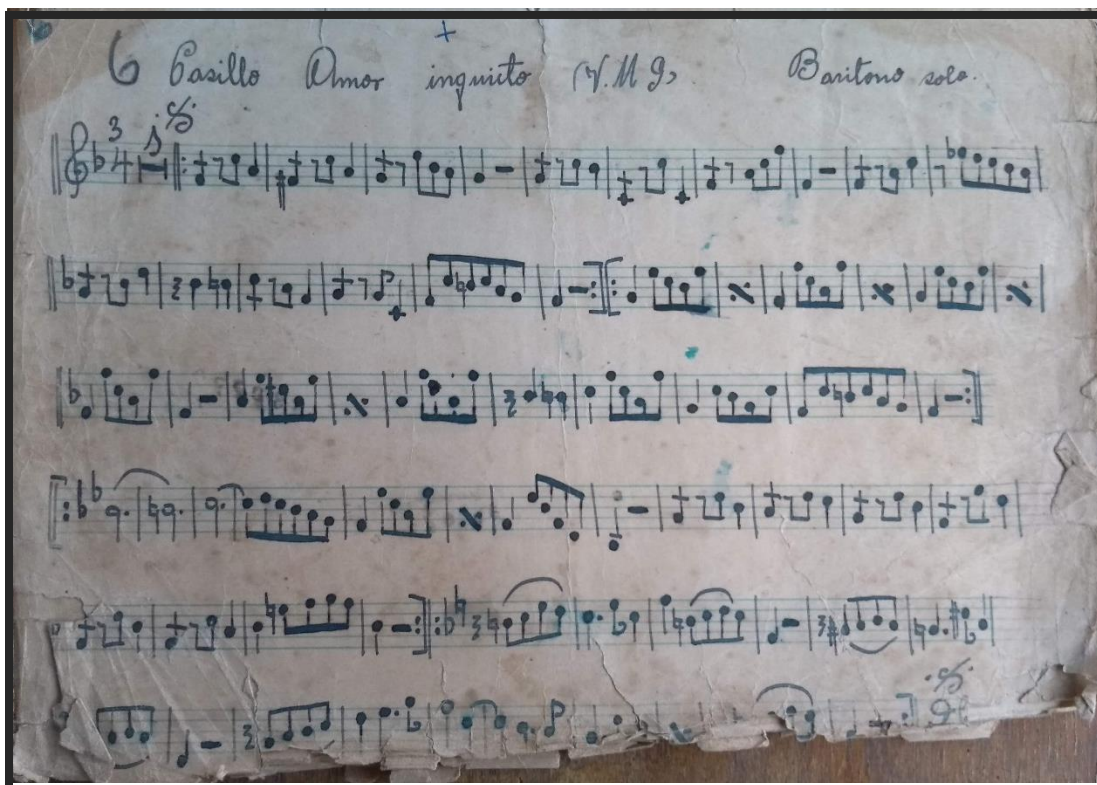 6 Pasillo Amor inquieto (V.M.G) Baritono solo.
3
4